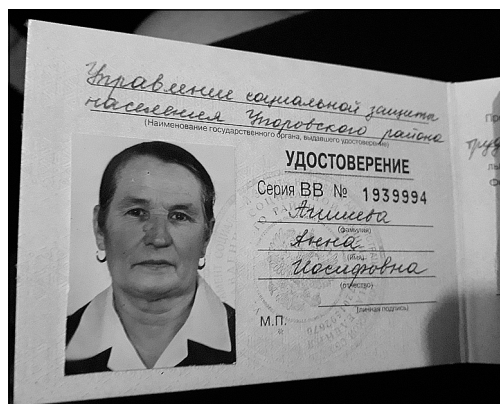 Управление социальной защиты
населения Упоровского района
(Наименование государственного органа, выдавшего удостоверение)
УДОСТОВЕРЕНИЕ
Серия ВВ № 1939994
(фамилия)
Анна
(имя)
Иосифовна
(отчество)
(личная подпись)
М.П.